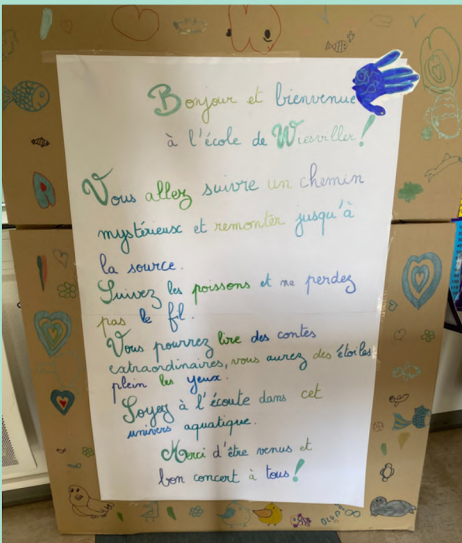 Bonjour et bienvenue
à l'école de Wiesviller !
Vous allez suivre un chemin
mystérieux et remonter jusqu'à
la source.
Suivez les poissons et ne perdez
pas le fil.
Vous pourrez lire des contes
extraordinaires, vous aurez des étoiles
plein les yeux.
Soyez à l'écoute dans cet
univers aquatique.
Merci d'être venus et
bon concert à tous !